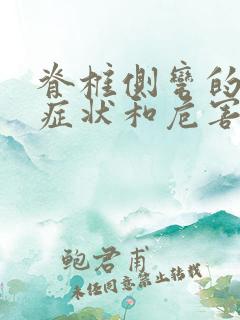 脊柱侧弯的
症状和危害
鲍君甫
未经同意禁止转载